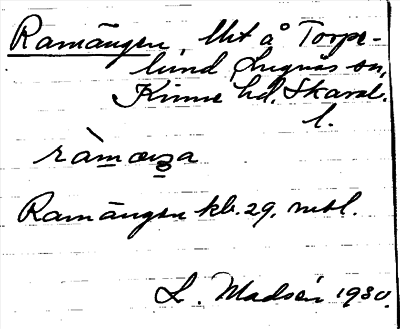 Ramängen, Utt å Torpe-
lund Lugnås sn,
Kinne hd. Skarab.
l.
ràmæŋa
Ramängen kb. 29. mtl.
L. Madsén 1930.